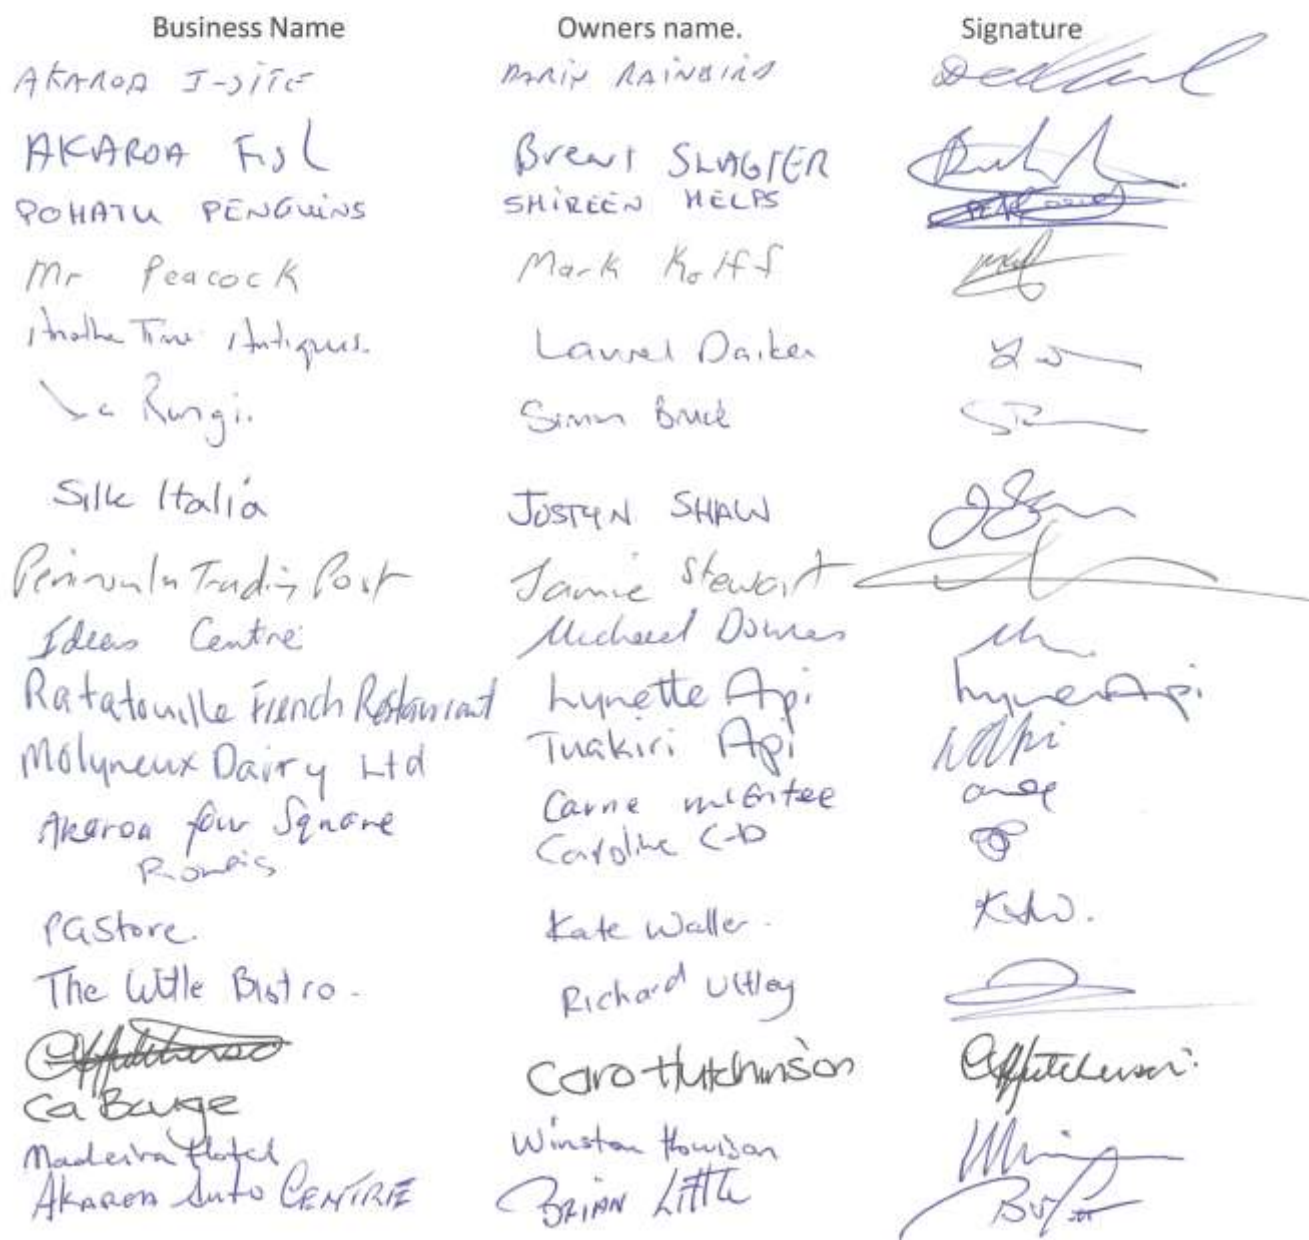 Business Name Owners name. Signature
AKAROA I-SITE DARIN RAINBIRD
AKAROA Fish Brent SLAGTER
POHATU PENGUINS SHIREEN HELPS
Mr Peacock Mark Kolff
Another Time Antiques. Laurel Darker
La Rangi. Simon
Silk Italia JUSTYN SHAW
Peninsula Trading Post Jamie Stewart
Ideas Centre Michael Downes
Ratatouille French Restaurant Lynette Api Lynette Api
Molyneux Dairy Ltd Tuakiri Api
Akaroa four Square Carne mcEntee
Caroline C-D
PGStore. Kate Waller. KW.
The Little Bistro. Richard Uttley
Ca Bouge Caro Hutchinson CHutchinson.
Madeira Hotel Winston Howison
AKAROA Auto CENTRE BRIAN Little